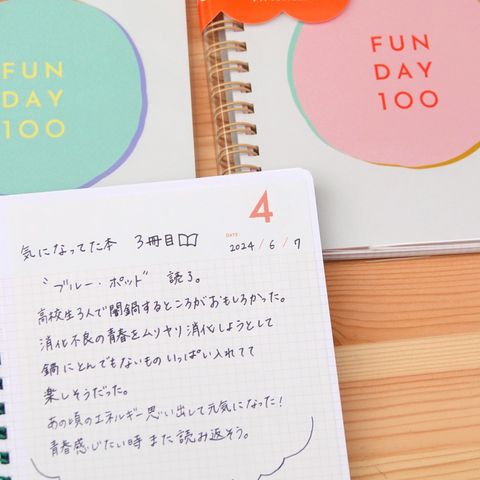 FUN
DAY
100
FUN
DAY
100
4
気になってた本 3冊目
DATE
2024/6/7
"ブルー・ポッド" 読了。
高校生3人で闇鍋するところがおもしろかった。
消化不良の青春をムリヤリ消化しようとして
鍋にとんでもないものいっぱい入れてて
楽しそうだった。
あの頃のエネルギー思い出して元気になった!
青春感じたい時また読み返そう。